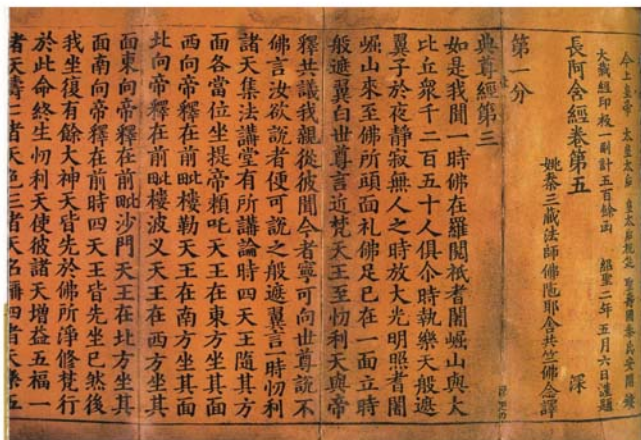 今上皇帝 太皇太后 皇太后祝延 聖壽國泰民安開鏤
大藏經印板一副計五百餘函 紹聖二年五月 日謹題
長阿含經卷第五 深
姚秦三藏法師佛陁耶舍共竺佛念譯
第一分
典尊經第三
如是我聞一時佛在羅閱祇耆闍崛山與大
比丘衆千二百五十人俱尒時執樂天般遮
翼子於夜静寂無人之時放大光明照耆闍
崛山來至佛所頭面礼佛足已在一面立時
般遮翼白世尊言近梵天王至忉利天與帝
釋共議我親從彼聞今者寧可向世尊說不
佛言汝欲說者便可說之般遮翼言一時忉利
諸天集法講堂有所講論時四天王隨其方
面各當位坐提帝頼吒天王在東方坐其面
西向帝釋在前毗樓勒天王在南方坐其面
北向帝釋在前毗樓波叉天王在西方坐其
面東向帝釋在前毗沙門天王在北方坐其
面南向帝釋在前時四天王皆先坐已然後
我坐復有餘大神天皆先於佛所淨修梵行
於此命終生忉利天使彼諸天增益五福一
者天壽二者天色三者天名稱四者天樂五